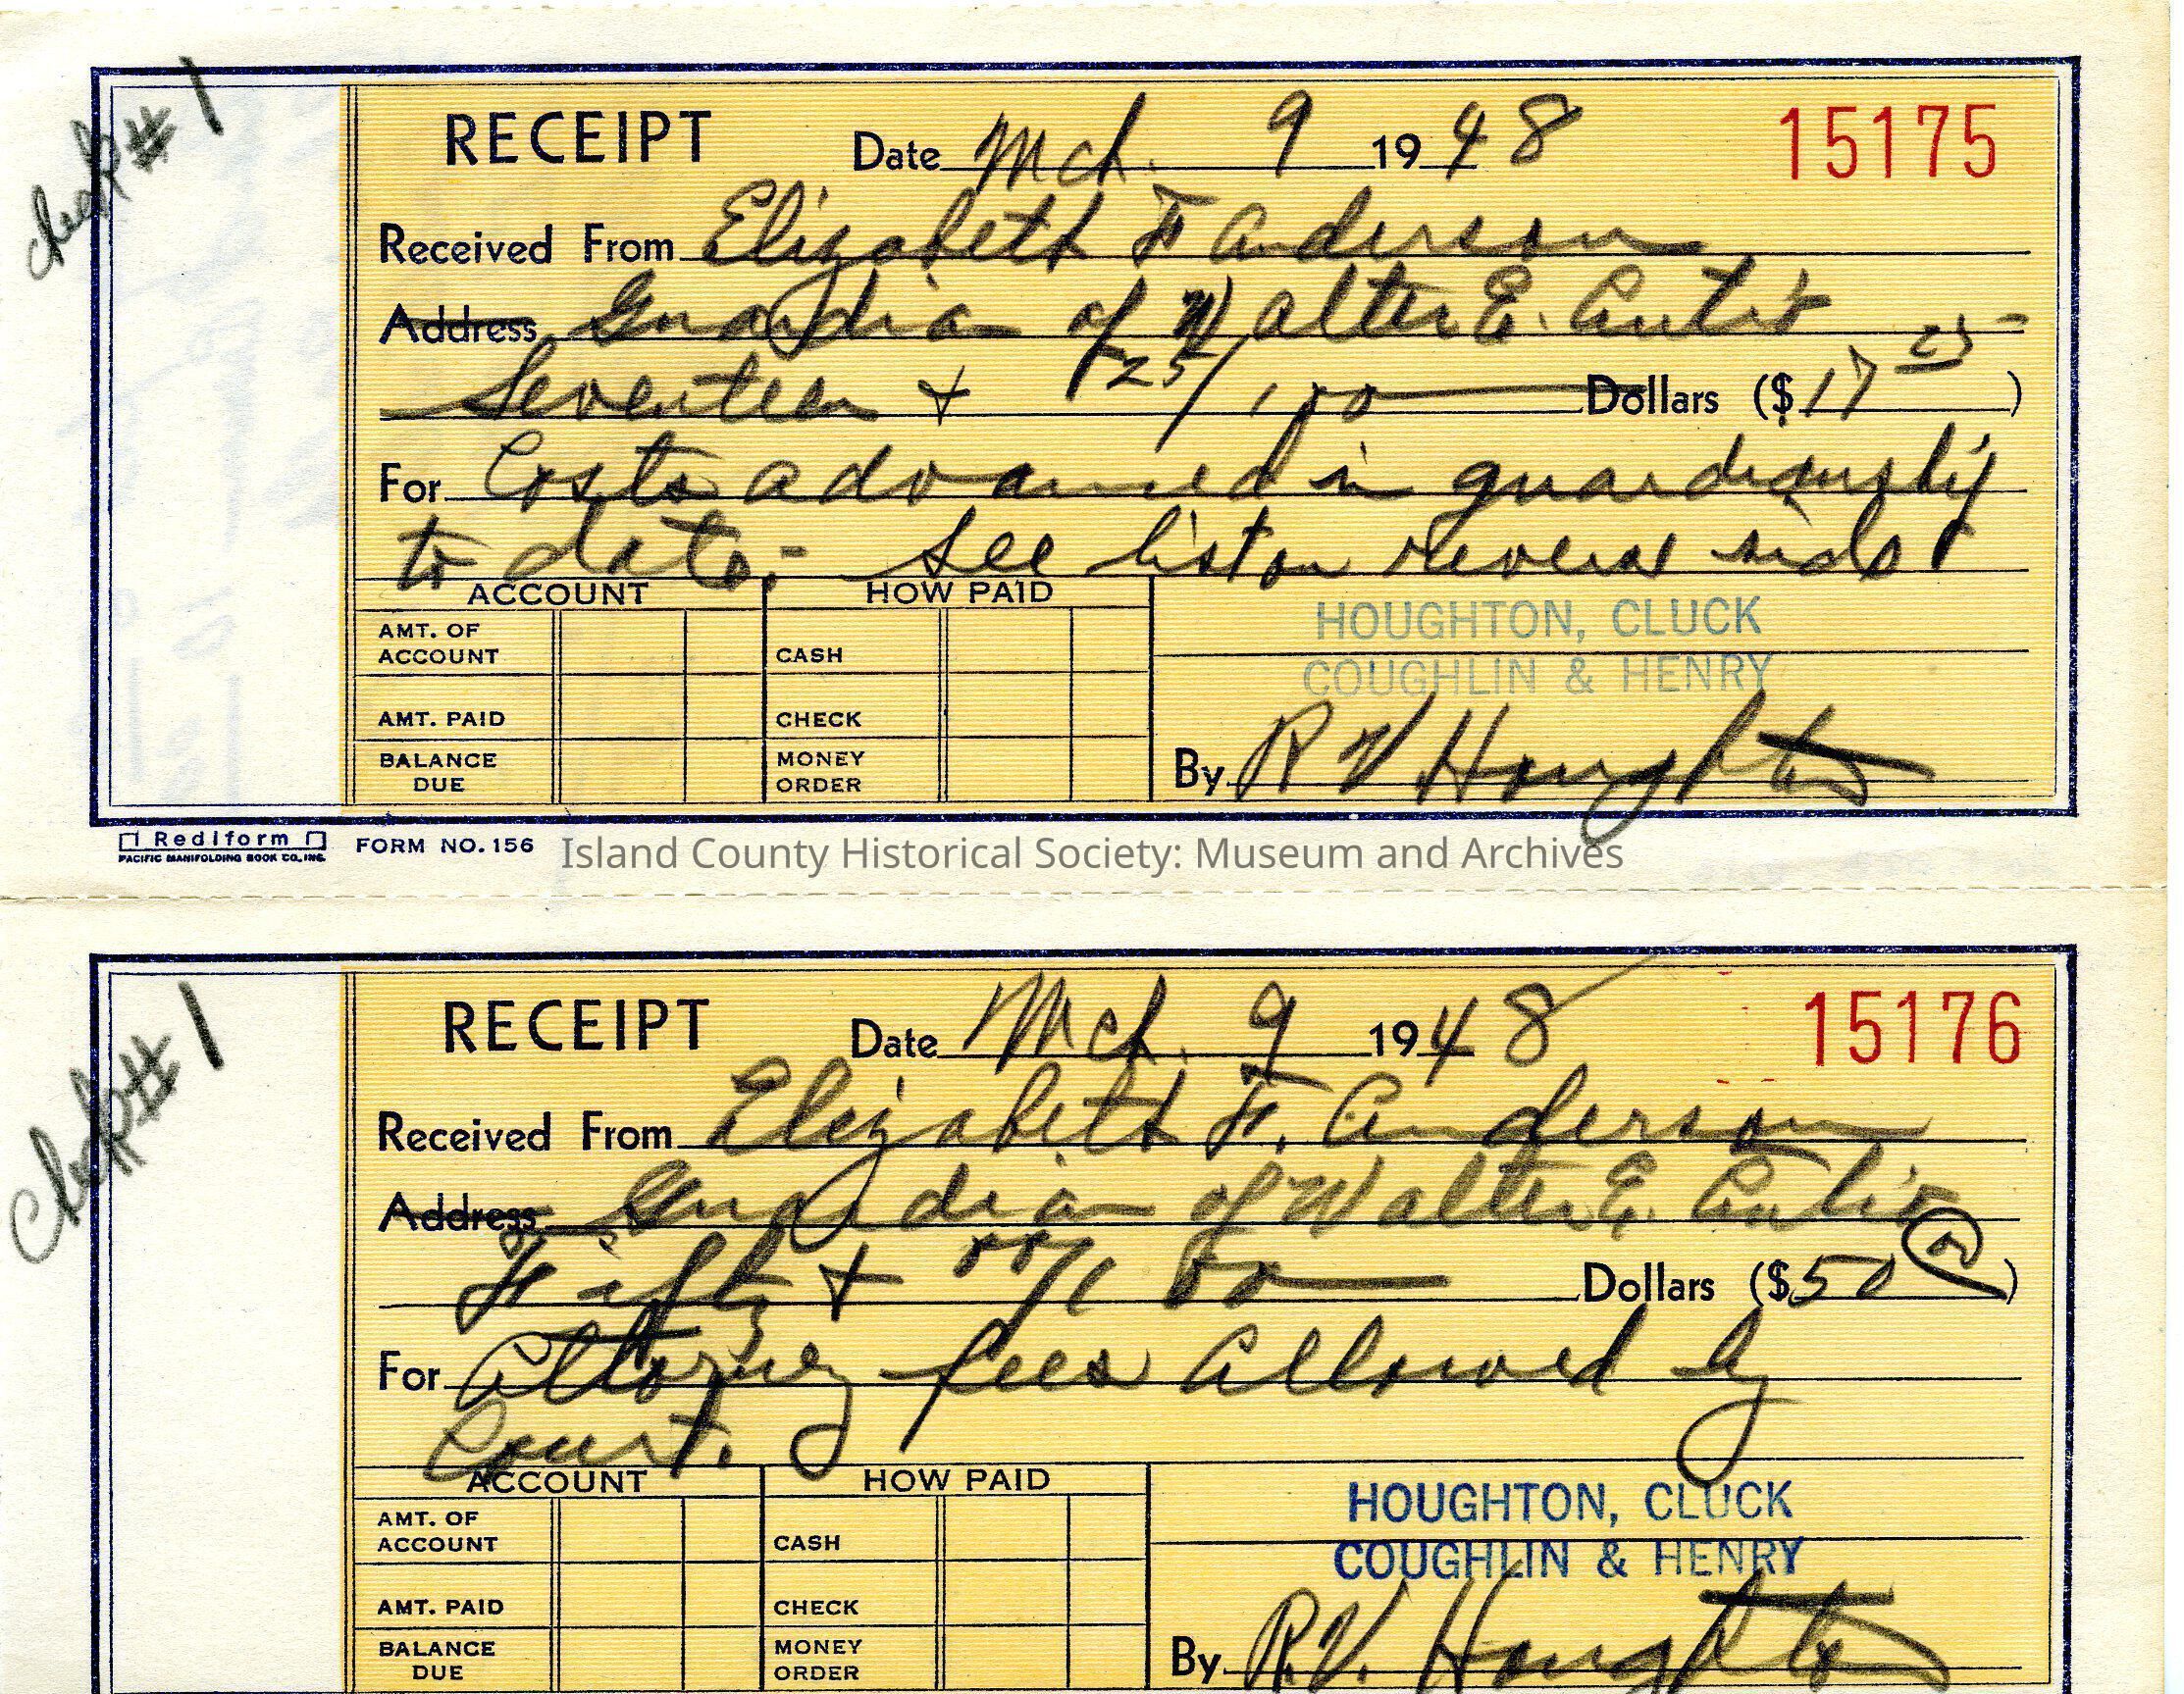 check # 1
RECEIPT Date Mch. 9 1948 15175
Received From Elizabeth F Anderson
Address Guardian of Walter E.
Seventeen + 25/100 Dollars ($17 25)
For Costs advanced in guardianship
to date;- See list on reverse side
ACCOUNT HOW PAID
HOUGHTON, CLUCK
AMT. OF
ACCOUNT CASH
COUGHLIN & HENRY
AMT. PAID CHECK
BALANCE
DUE MONEY
ORDER
By R V Houghton
Rediform
PACIFIC MANIFOLDING BOOK CO., INC.
FORM NO. 156
Island County Historical Society: Museum and Archives
Check # 1
RECEIPT Date Mch. 9 1948 15176
Received From Elizabeth F. Anderson
Address Guardian of Walter E.
Fifty + 00/100 Dollars ($50 00)
For Attorney fees allowed by
Court.
ACCOUNT HOW PAID
HOUGHTON, CLUCK
AMT. OF
ACCOUNT CASH
COUGHLIN & HENRY
AMT. PAID CHECK
BALANCE
DUE MONEY
ORDER
By R.V. Houghton